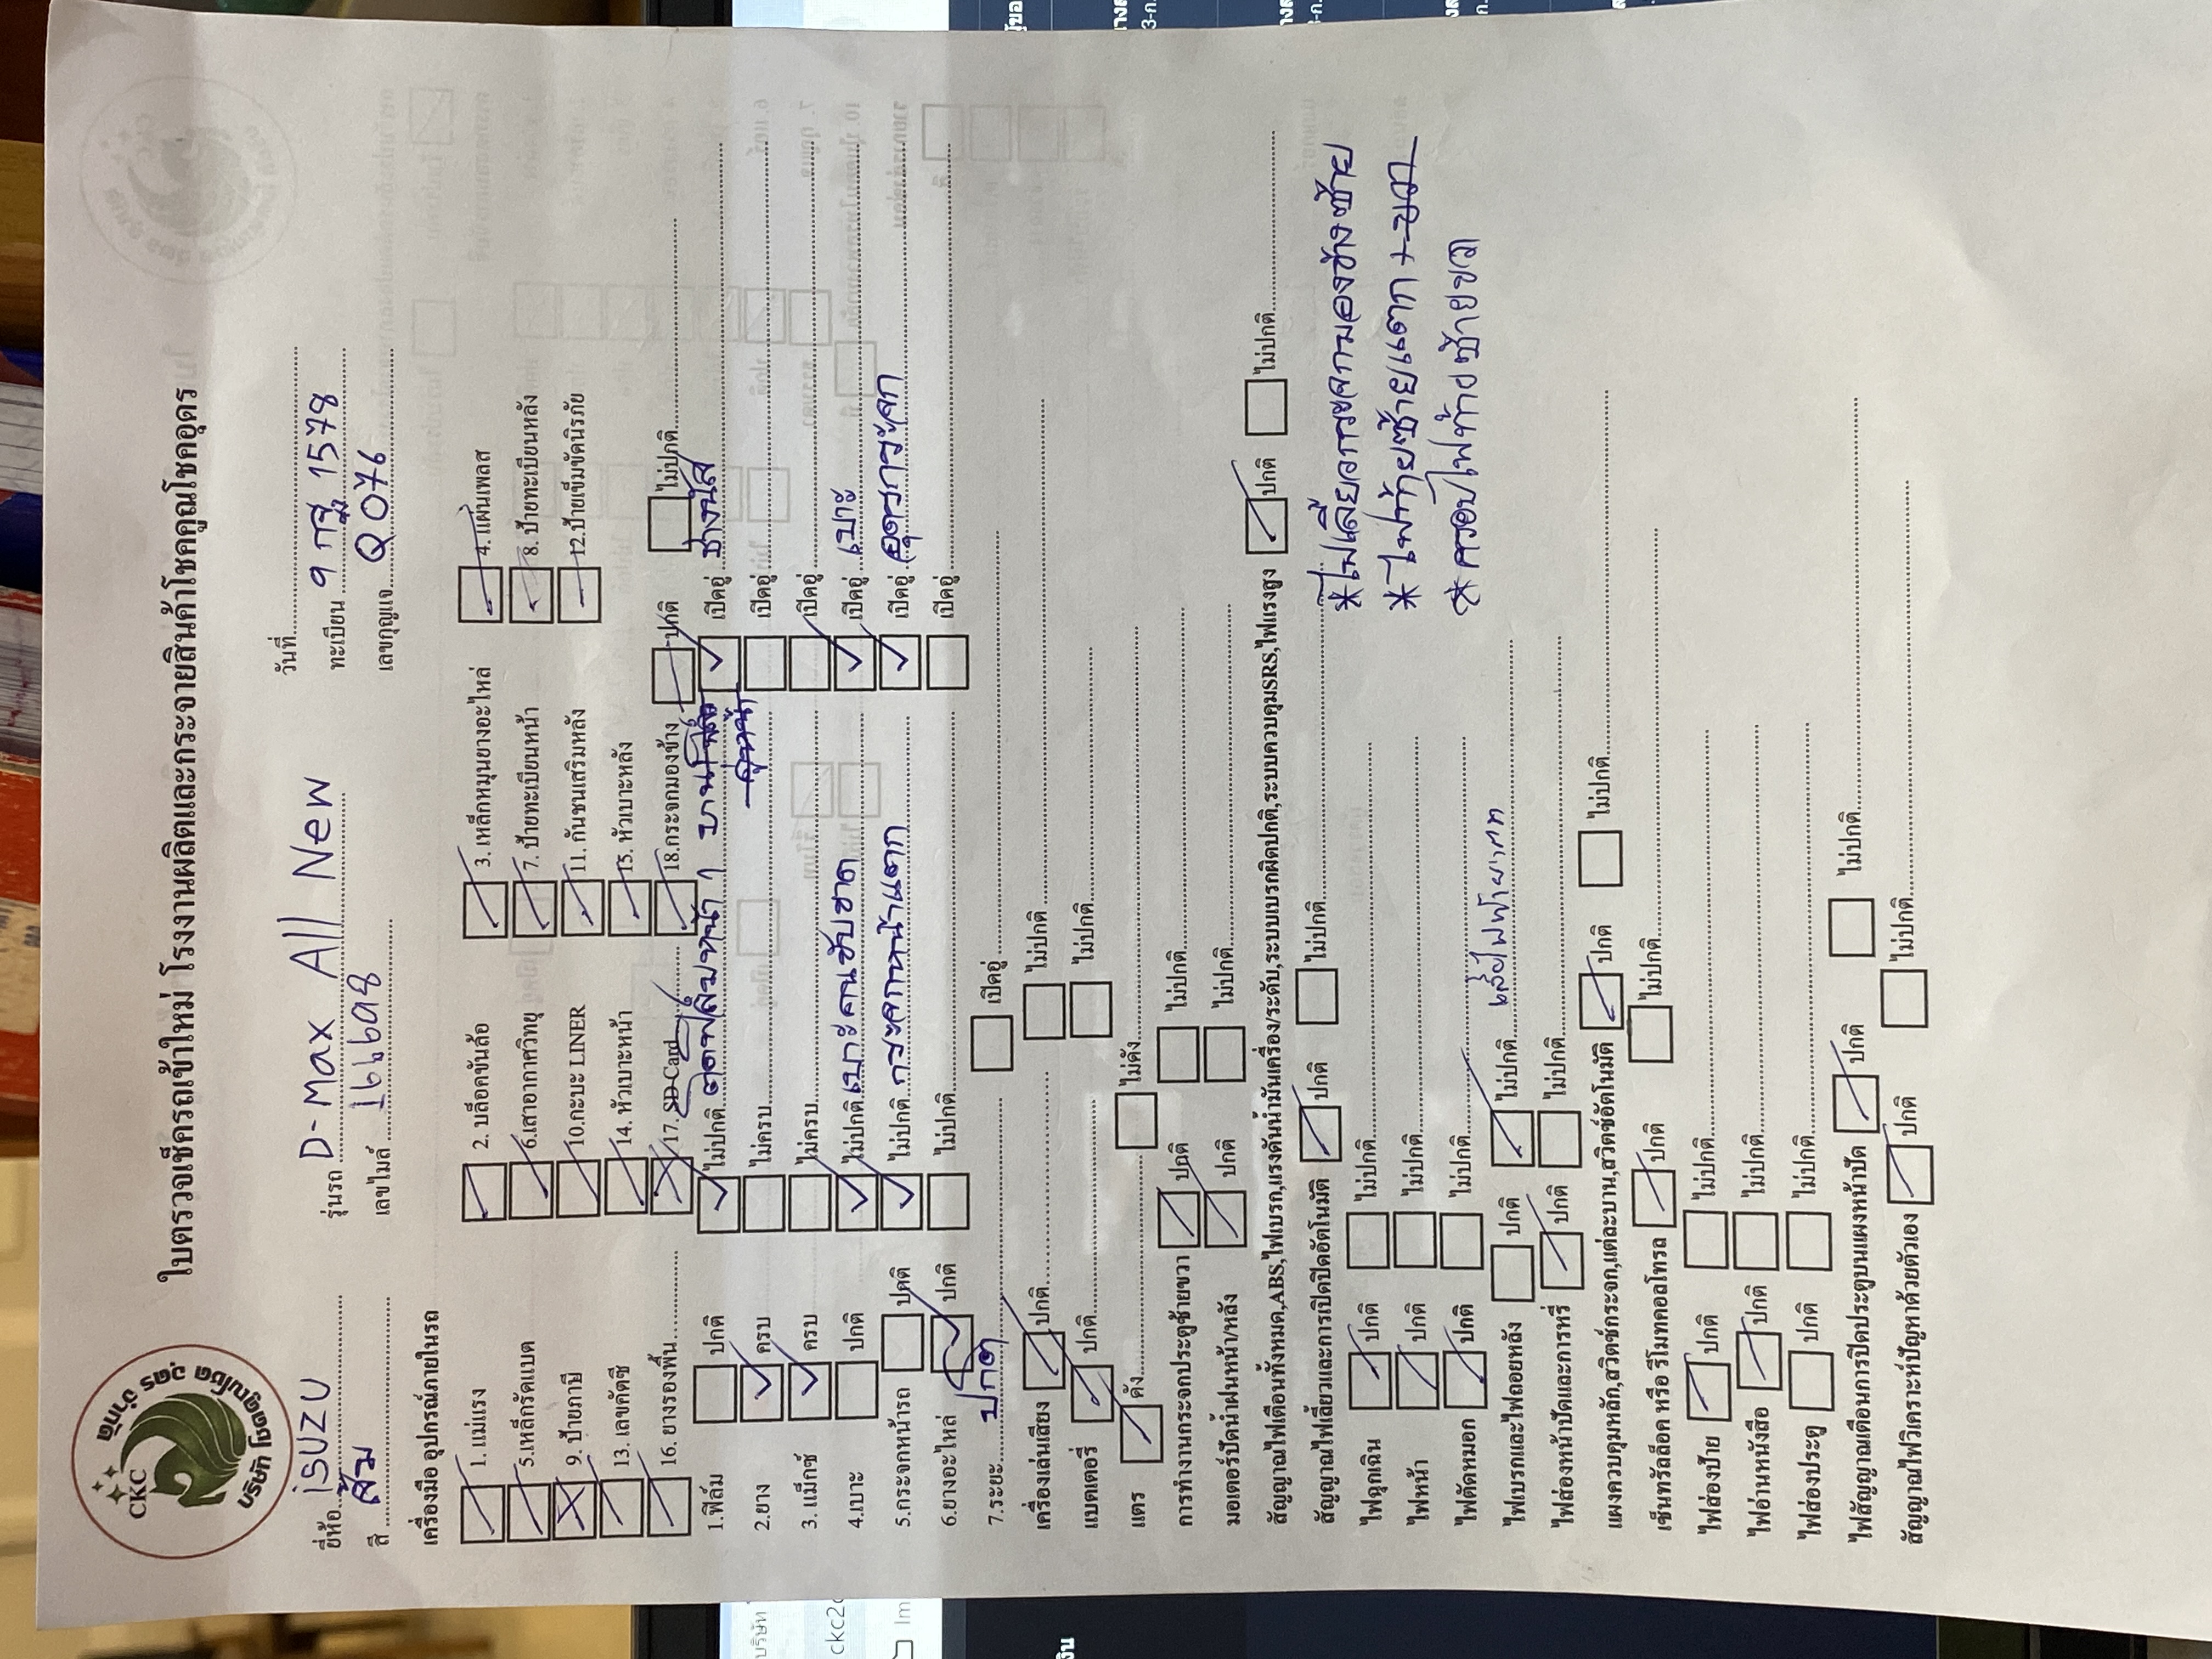 CKC
บริษัท โชคคูณโชค อุดร จำกัด
ใบตรวจเช็ครถเข้าใหม่ โรงงานผลิตและกระจายสินค้าโชคคูณโชคอุดร
วันที่
ยี่ห้อ ISUZU รุ่นรถ D-Max All New ทะเบียน 9 กฐ 1578
สี ส้ม เลขไมล์ 166698 เลขกุญแจ Q076
เครื่องมือ อุปกรณ์ภายในรถ
1. แม่แรง 2. บล็อคขันล้อ 3. เหล็กหมุนยางอะไหล่ 4. แผ่นเพลส
5.เหล็กรัดแบต 6.เสาอากาศวิทยุ 7. ป้ายทะเบียนหน้า 8. ป้ายทะเบียนหลัง
9. ป้ายภาษี 10.กะบะ LINER 11. กันชนเสริมหลัง 12.ป้ายเข็มขัดนิรภัย
13. เลขคัตซี 14. หัวเบาะหน้า 15. หัวเบาะหลัง
16. ยางรองพื้น 17. SD Card 18.กระจกมองข้าง ปกติ ไม่ปกติ
1.ฟิล์ม ปกติ ไม่ปกติ เปิดอู่ ช่างนัส
2.ยาง ครบ ไม่ครบ เปิดอู่
3. แม็กซ์ ครบ ไม่ครบ เปิดอู่
4.เบาะ ปกติ ไม่ปกติ เบาะคนขับขาด เปิดอู่ เบาะ
5.กระจกหน้ารถ ปกติ ไม่ปกติ กระจกหน้าแตก เปิดอู่ อุดรการจก
6.ยางอะไหล่ ปกติ ไม่ปกติ เปิดอู่
7.ระยะ ปกติ เปิดอู่
เครื่องเล่นเสียง ปกติ ไม่ปกติ
แบตเตอรี่ ปกติ ไม่ปกติ
แตร ดัง ไม่ดัง
การทำงานกระจกประตูซ้ายขวา ปกติ ไม่ปกติ
มอเตอร์ปัดน้ำฝนหน้า/หลัง ปกติ ไม่ปกติ
สัญญาณไฟเตือนทั้งหมด,ABS,ไฟเบรก,แรงดันน้ำมันเครื่อง/ระดับ,ระบบเบรกผิดปกติ,ระบบควบคุมSRS,ไฟแรงสูง ปกติ ไม่ปกติ
สัญญาณไฟเลี้ยวและการเปิดปิดอัตโนมัติ ปกติ ไม่ปกติ
* ไฟเลี้ยว มองข้างซ้าย
ไฟฉุกเฉิน ปกติ ไม่ปกติ
* ไฟท้ายซ้ายแตก + ขวา
ไฟหน้า ปกติ ไม่ปกติ
* ครอบไฟท้ายซ้ายขวา
ไฟตัดหมอก ปกติ ไม่ปกติ
ไฟเบรกและไฟถอยหลัง ปกติ ไม่ปกติ
ไฟส่องหน้าปัดและการหรี่ ปกติ ไม่ปกติ
แผงควบคุมหลัก,สวิตช์กระจก,แต่ละบาน,สวิตช์อัตโนมัติ ปกติ ไม่ปกติ
เซ็นทรัลล็อค หรือ รีโมทคอลโทรล ปกติ ไม่ปกติ
ไฟส่องป้าย ปกติ ไม่ปกติ
ไฟอ่านหนังสือ ปกติ ไม่ปกติ
ไฟส่องประตู ปกติ ไม่ปกติ
ไฟสัญญาณเตือนการปิดประตูบนแผงหน้าปัด ปกติ ไม่ปกติ
สัญญาณไฟวิเคราะห์ปัญหาด้วยตัวเอง ปกติ ไม่ปกติ